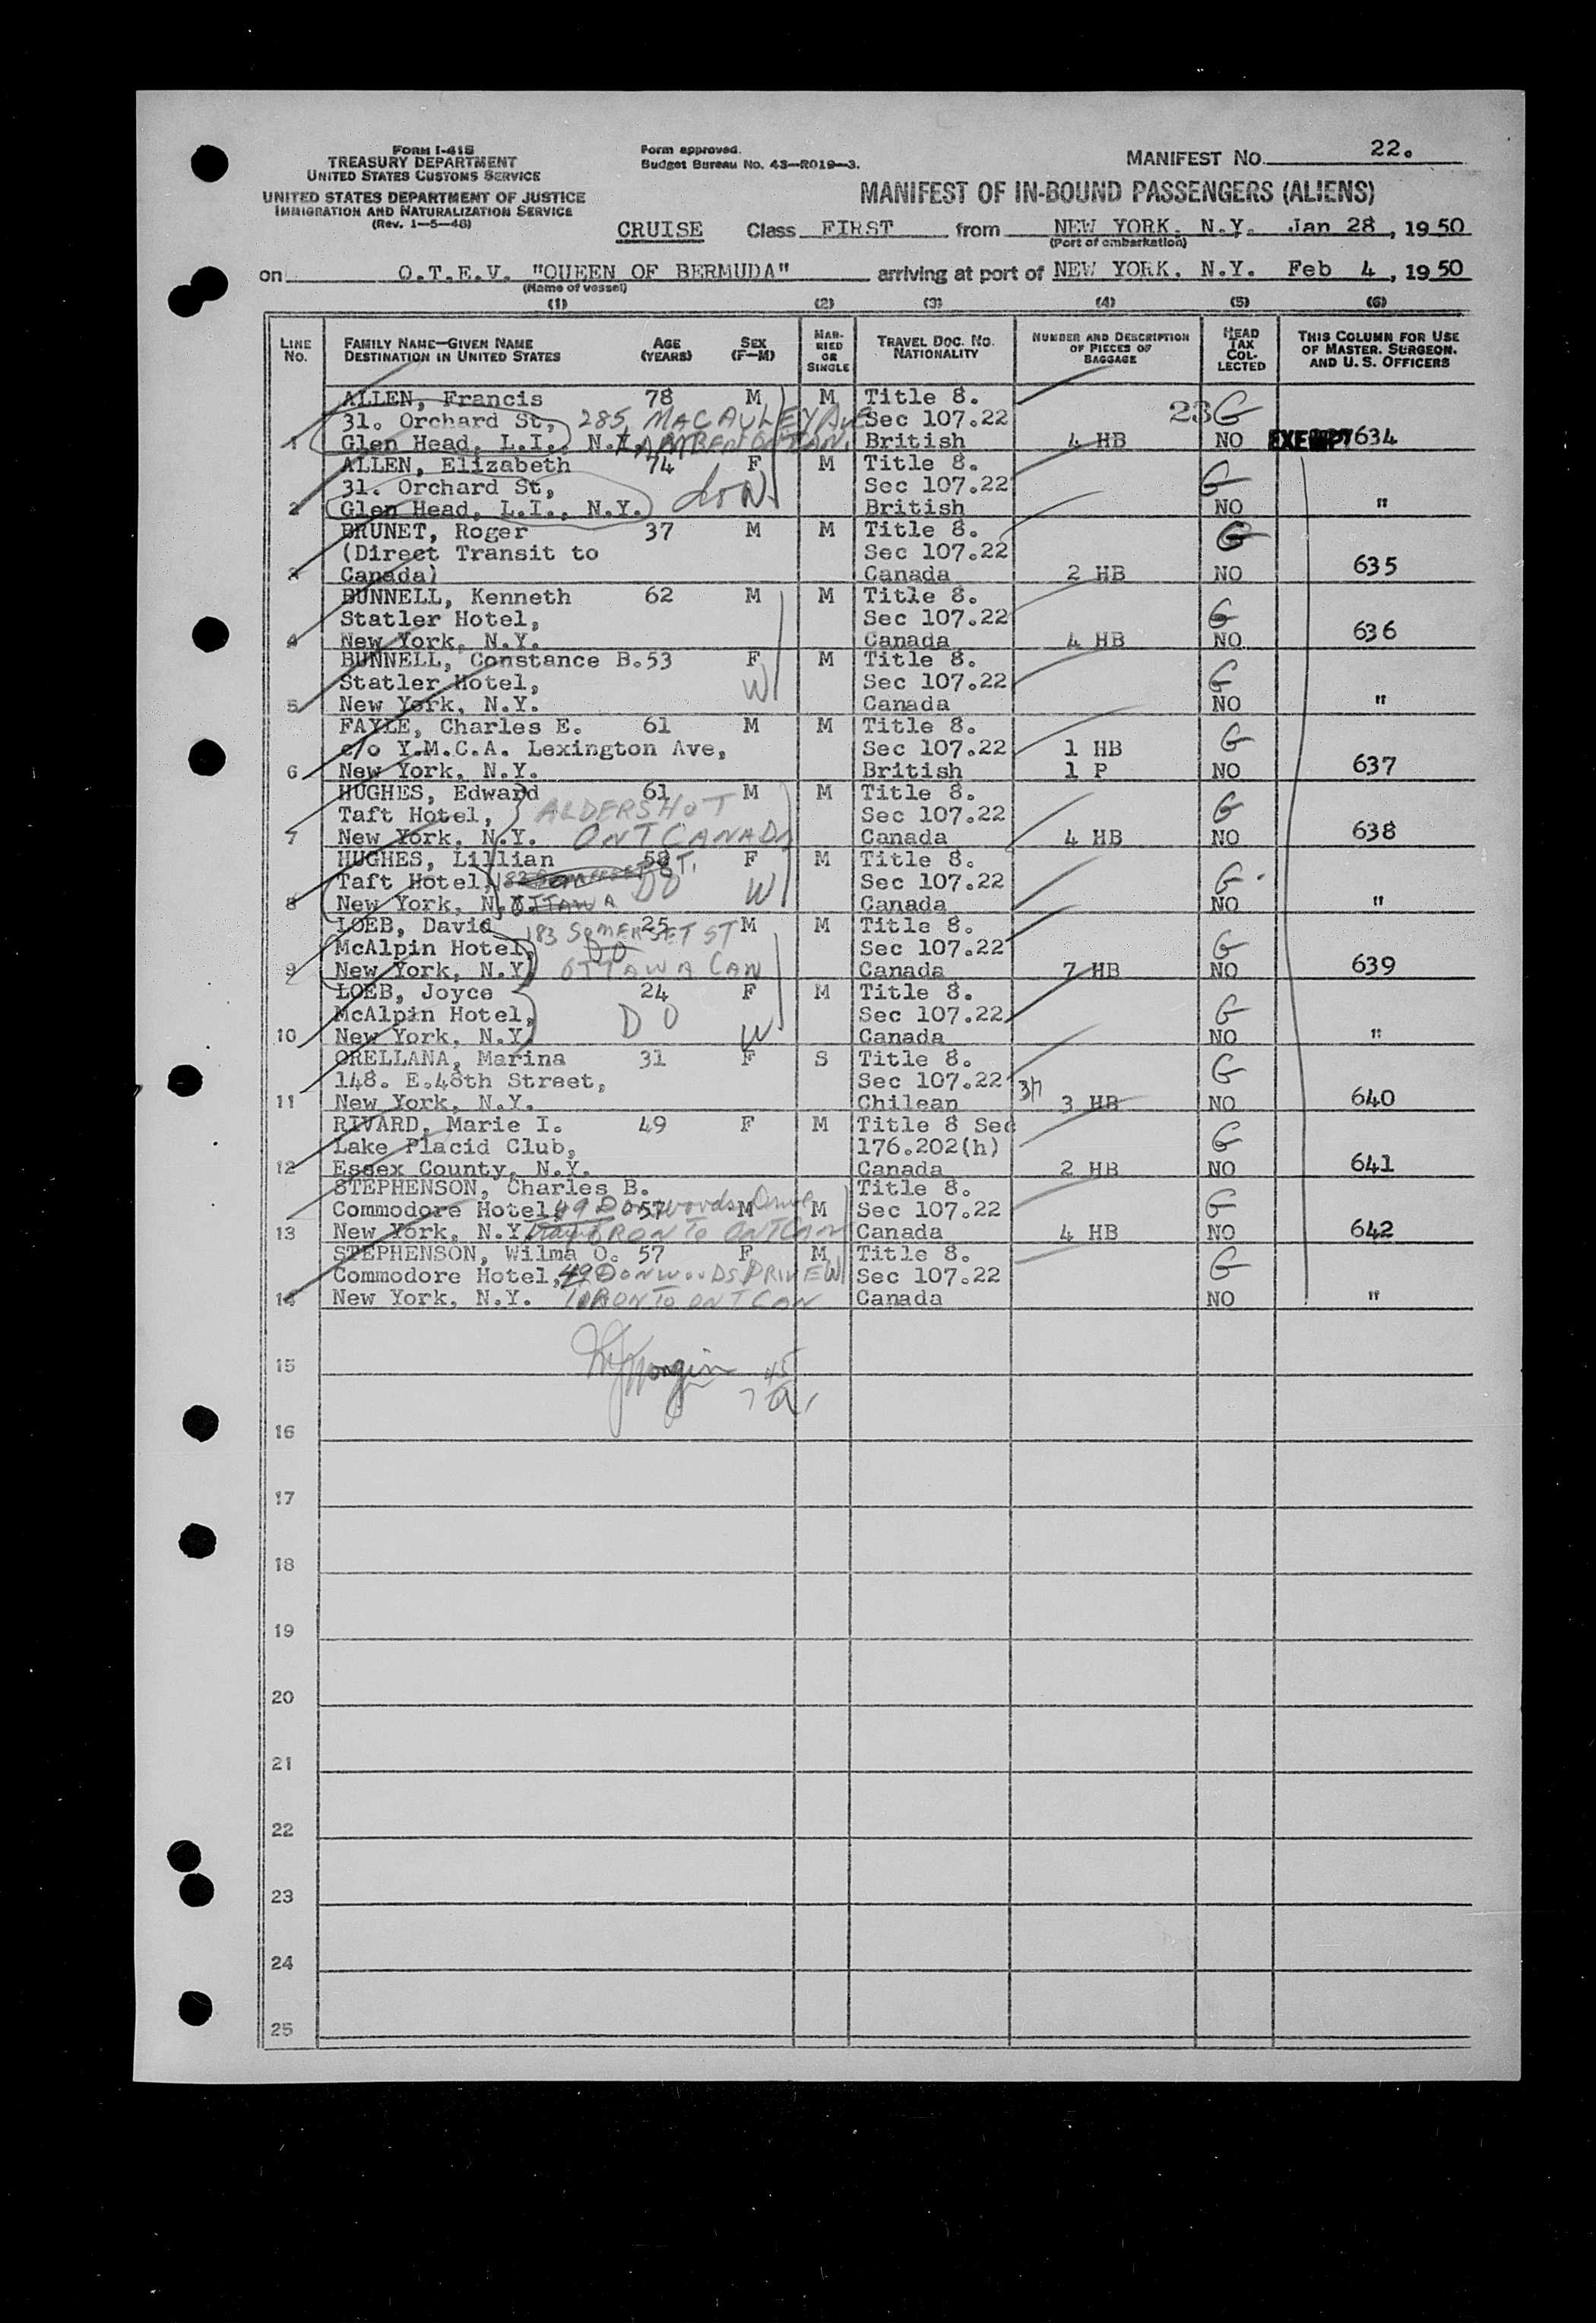 FORM I-418
TREASURY DEPARTMENT
UNITED STATES CUSTOMS SERVICE
UNITED STATES DEPARTMENT OF JUSTICE
IMMIGRATION AND NATURALIZATION SERVICE
(Rev. 1-5-48)
Form approved.
Budget Bureau No. 43-R019-3.
MANIFEST NO. 22.
MANIFEST OF IN-BOUND PASSENGERS (ALIENS)
CRUISE Class FIRST from NEW YORK. N.Y. Jan 28, 1950
(Port of embarkation)
on O.T.E.V. "QUEEN OF BERMUDA" arriving at port of NEW YORK. N.Y. Feb 4, 1950
(Name of vessel)
(1) (2) (3) (4) (5) (6)
LINE NO. FAMILY NAME—GIVEN NAME DESTINATION IN UNITED STATES AGE (YEARS) SEX (F—M) MARRIED OR SINGLE TRAVEL DOC. NO. NATIONALITY NUMBER AND DESCRIPTION OF PIECES OF BAGGAGE HEAD TAX COLLECTED THIS COLUMN FOR USE OF MASTER, SURGEON, AND U. S. OFFICERS
ALLEN, Francis 78 M M Title 8.
31. Orchard St, 285 MACAULEY AVE Sec 107.22 23 G
1 Glen Head, L.I., N.Y. British 4 HB NO EXEMPT 634
ALLEN, Elizabeth 74 F M Title 8.
31. Orchard St, Sec 107.22 G
2 Glen Head, L.I., N.Y. British NO "
BRUNET, Roger 37 M M Title 8.
(Direct Transit to Sec 107.22 G
3 Canada) Canada 2 HB NO 635
BUNNELL, Kenneth 62 M M Title 8.
Statler Hotel, Sec 107.22 G
4 New York, N.Y. Canada 4 HB NO 636
BUNNELL, Constance B. 53 F M Title 8.
Statler Hotel, W Sec 107.22 G
5 New York, N.Y. Canada NO "
FAYLE, Charles E. 61 M M Title 8.
c/o Y.M.C.A. Lexington Ave, Sec 107.22 1 HB G
6 New York, N.Y. British 1 P NO 637
HUGHES, Edward 61 M M Title 8.
Taft Hotel, ALDERSHOT Sec 107.22 G
7 New York, N.Y. ONT CANADA Canada 4 HB NO 638
HUGHES, Lillian 58 F M Title 8.
Taft Hotel, DO W Sec 107.22 G
8 New York, N.Y. OTTAWA Canada NO "
LOEB, David 25 M M Title 8.
McAlpin Hotel, 183 SOMERSET ST Sec 107.22 G
9 New York, N.Y. OTTAWA CAN Canada 7 HB NO 639
LOEB, Joyce 24 F M Title 8.
McAlpin Hotel, DO Sec 107.22 G
10 New York, N.Y. W Canada NO "
ORELLANA, Marina 31 F S Title 8.
148. E.48th Street, Sec 107.22 G
11 New York, N.Y. Chilean 3 HB NO 640
RIVARD, Marie I. 49 F M Title 8 Sec
Lake Placid Club, 176.202(h) G
12 Essex County, N.Y. Canada 2 HB NO 641
STEPHENSON, Charles B. Title 8.
Commodore Hotel, 49 Donwoods Drive 57 M M Sec 107.22 G
13 New York, N.Y. TORONTO ONT CAN Canada 4 HB NO 642
STEPHENSON, Wilma O. 57 F M Title 8.
Commodore Hotel, 49 DONWOODS DRIVE W Sec 107.22 G
14 New York, N.Y. TORONTO ONT CAN Canada NO "
15
16
17
18
19
20
21
22
23
24
25